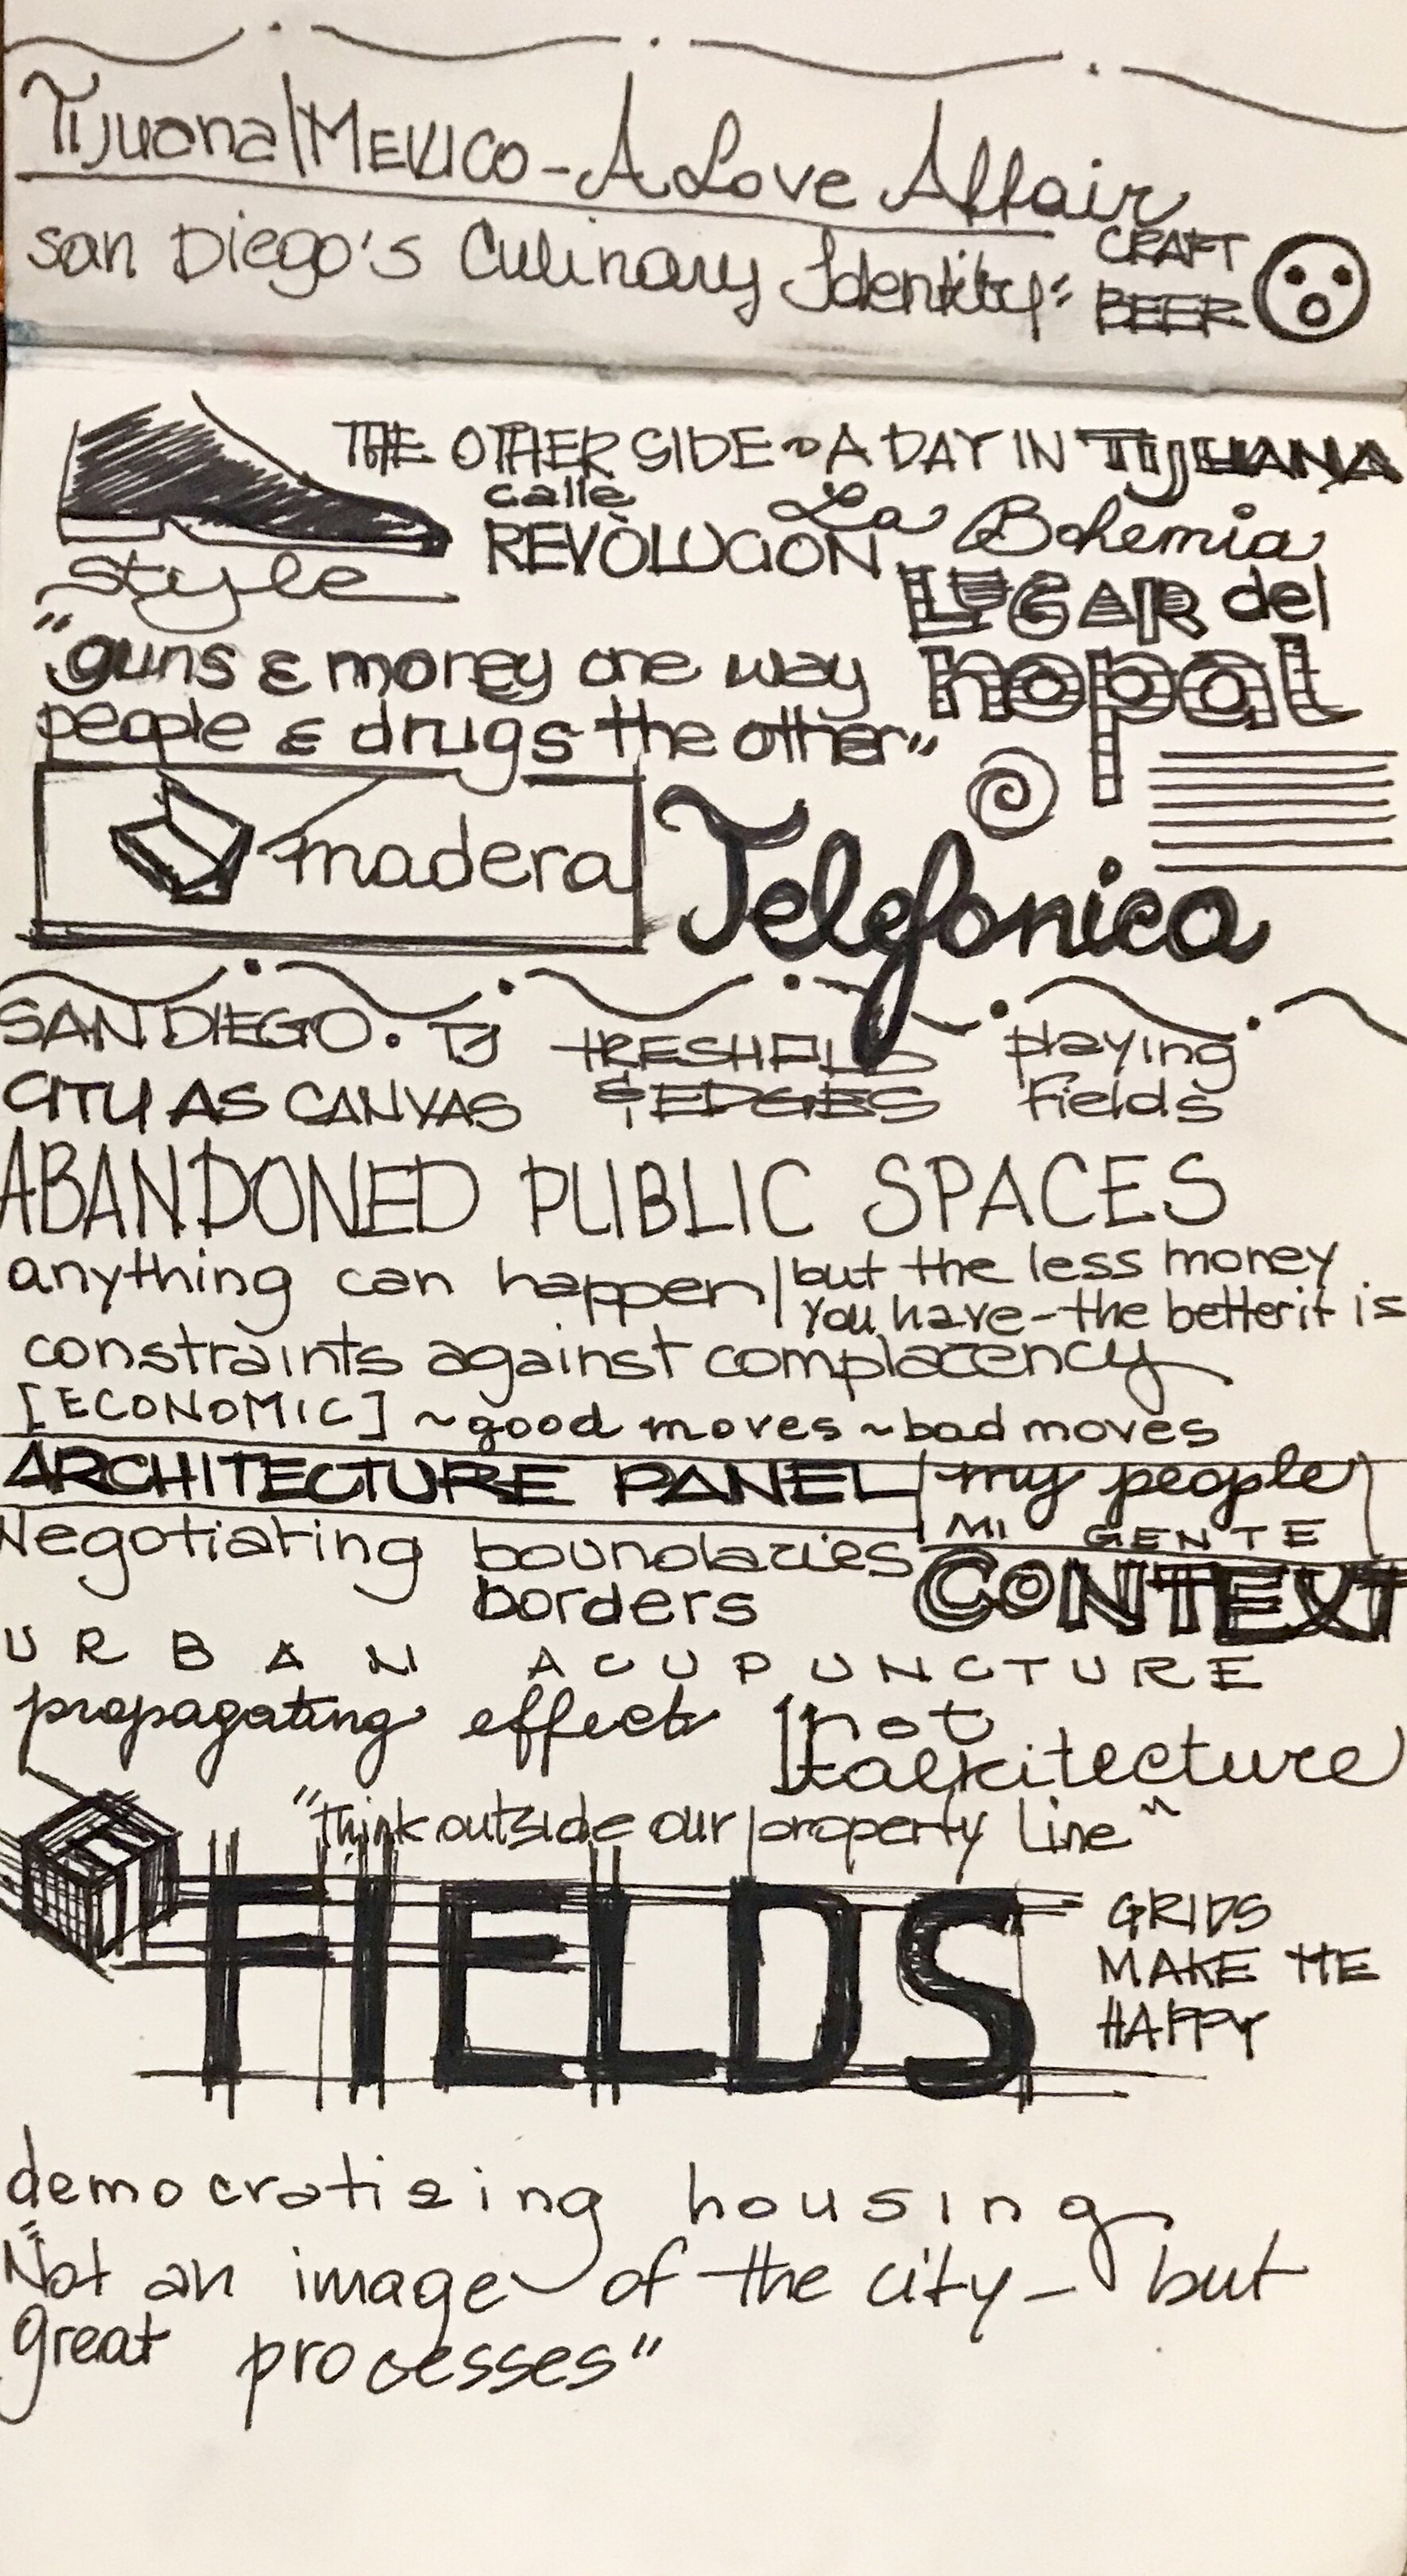 Tijuana|MEXICO-A Love Affair
San Diego's Culinary Identity:
CRAFT
BEER
THE OTHER SIDE ~ A DAY IN TIJUANA
style
calle
REVÒLUCION
La Bohemia
LUGAR del
nopal
"guns & money one way
people & drugs the other"
madera
Telefonica
SAN DIEGO • TJ
CITY AS CANVAS
THRESHOLD
& EDGES
playing
Fields
ABANDONED PUBLIC SPACES
anything can happen|
but the less money
you have-the better it is
constraints against complacency
[ECONOMIC] ~good moves ~bad moves
ARCHITECTURE PANEL
my people
MI GENTE
Negotiating boundaries
borders
CONTEXT
URBAN ACUPUNCTURE
propagating effect
not
talkitecture
"Think outside our property line"
FIELDS
GRIDS
MAKE ME
HAPPY
democratizing housing
"Not an image of the city - but
great processes"